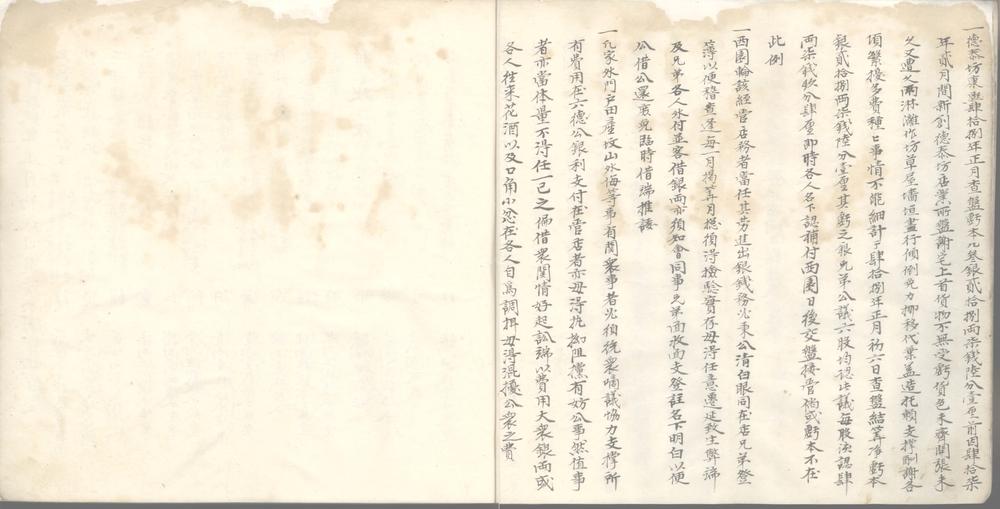 一德泰坊東熙肆拾捌年正月查盤虧本九叁銀貳拾捌兩柒錢陸分壹厘前因肆拾柒
年貳月間新創德泰坊店業所盤謝宅上首貨物不無受虧貨色未齊開張未
久又遭久雨淋漓作坊草屋墻垣盡行傾倒免力挪移代業蓋造托賴支撐酬謝各
項繁擾多費種種事情不能細計于肆拾捌年正月初六日查盤結算净虧本
銀貳拾捌兩柒錢陸分壹厘其虧之銀兄弟公議六股均認此議每股該認肆
兩柒錢玖分肆厘即時各人名下認補付西園日後交盤接管倘或虧本不在
此例
一西園輪該經管店務者當任其勞進出銀錢務必秉公清白眼同在店兄弟登
簿以便稽查逢每一月揭算月總須得檢驗實存毋得任意遷延致生弊端
及兄弟各人分付並客借銀兩亦須知會同事兄弟面收面支登註名下明白以便
公借公還豈免臨時借端推諉
一孔家外門戸田產坟山外侮等事有關衆事者必須統衆嘀議協力支撐所
有費用在六德公銀利支付在管店者亦毋得執拗阻黨有妨公事然值事
者亦當体量不得任一己之偏借衆閑情好起訟端以費用大衆銀兩或
各人往來花酒以及口角小忿在各人自爲調排毋得混擾公衆之費